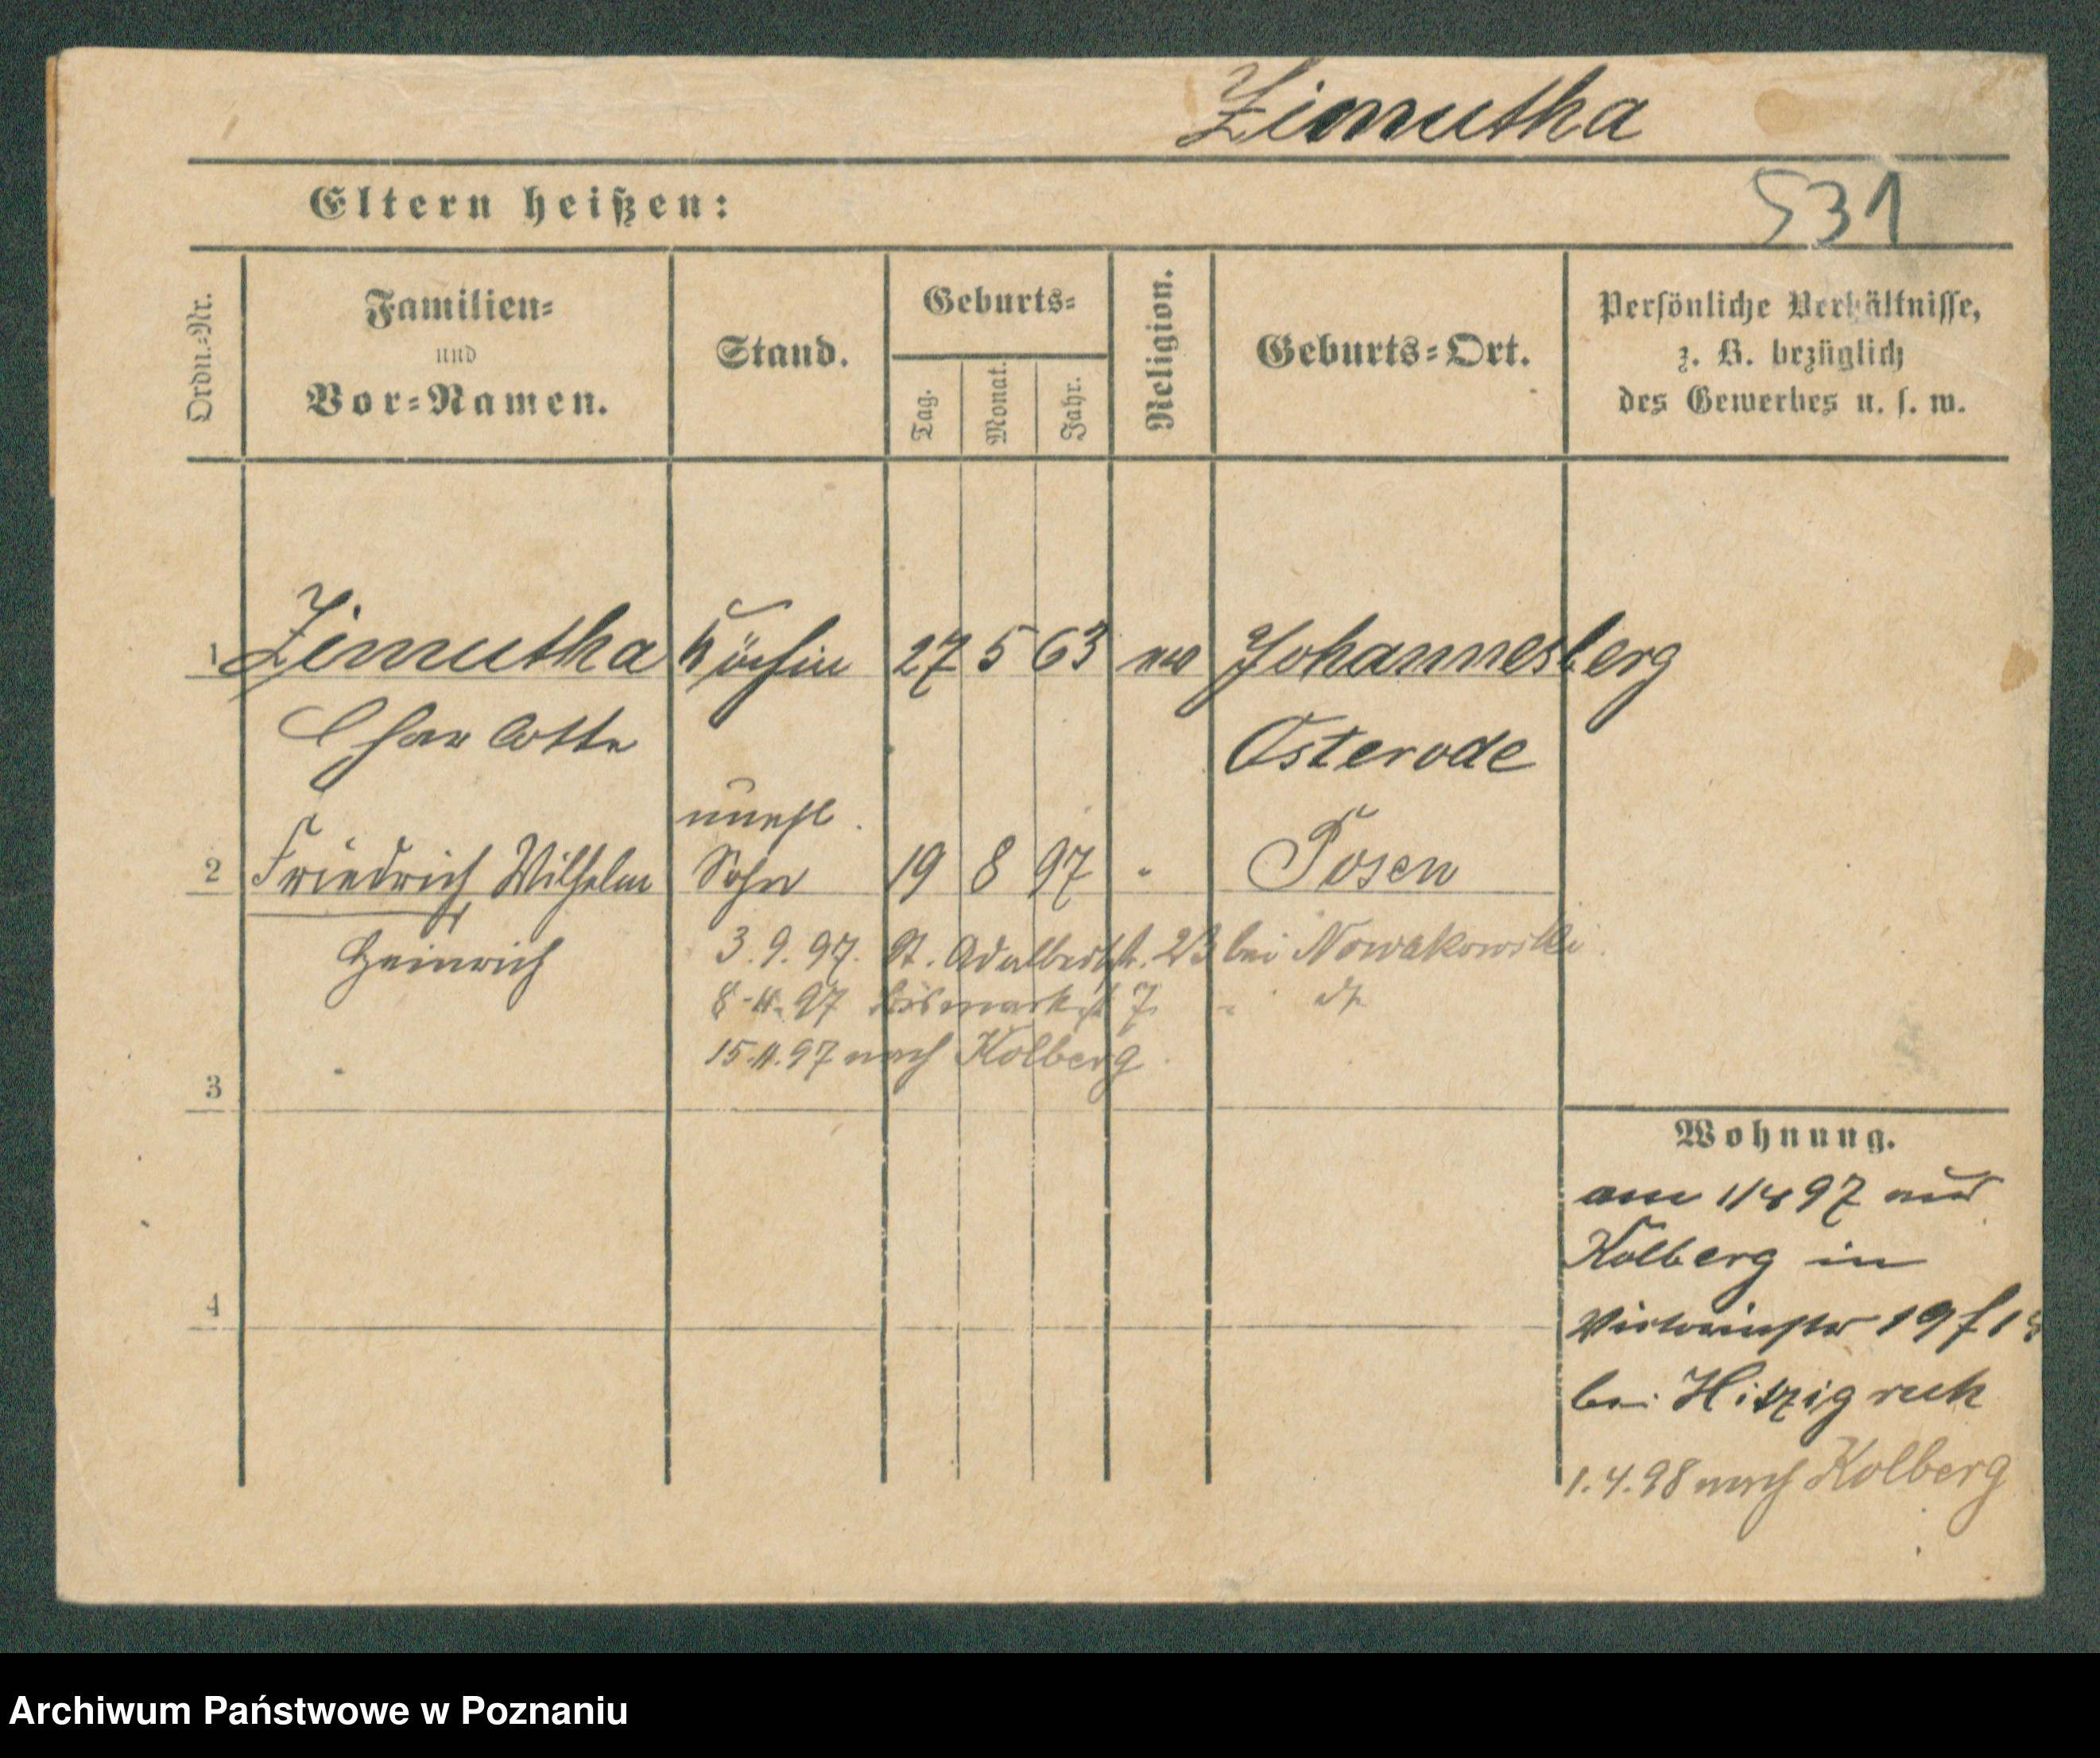 Zimutha
531
Eltern heißen:
Ordn.-Nr.
Familien-
und
Vor-Namen.
Stand.
Geburts-
Tag.
Monat.
Jahr.
Religion.
Geburts-Ort.
Persönliche Verhältnisse,
z. B. bezüglich
des Gewerbes u. s. w.
1 Zimutha Köchin 27 5 63 Johannesberg
Charlotte Osterode
unehl.
2 Friedrich Wilhelm Sohn 19 8 97 " Posen
Heinrich
3.9.97. St. Adalbertstr. 23 bei Nowakowski
8-11.97 Bismarckst 7 "
15.11.97 nach Kolberg
3
4
Wohnung.
am 97 aus
Kolberg in
Victoriastr 19
bei Hitzigrath
1.4.98 nach Kolberg
Archiwum Państwowe w Poznaniu